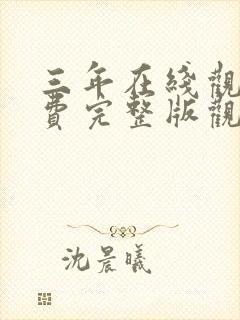 三年在綫觀
費完整版觀
沈晨曦